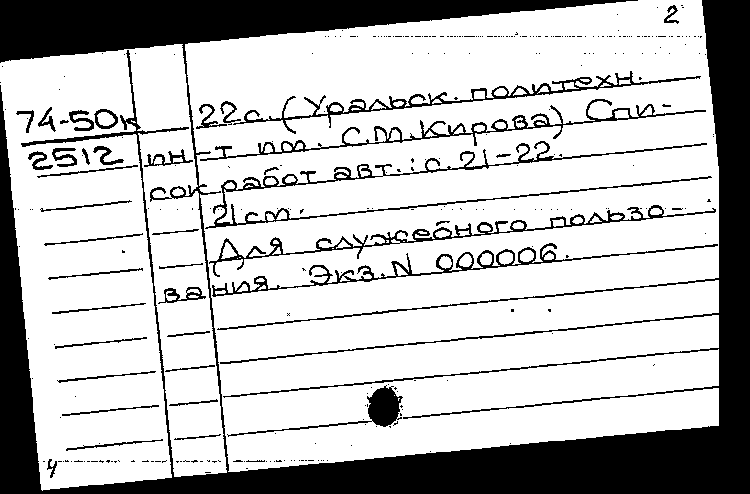 2
74-50к
2512
22с. (Уральск. политехн.
ин-т им. С.М.Кирова). Спи-
сок работ авт.: с. 21-22.
21 см.
Для служебного пользо-
вания. Экз. N 000006.
4